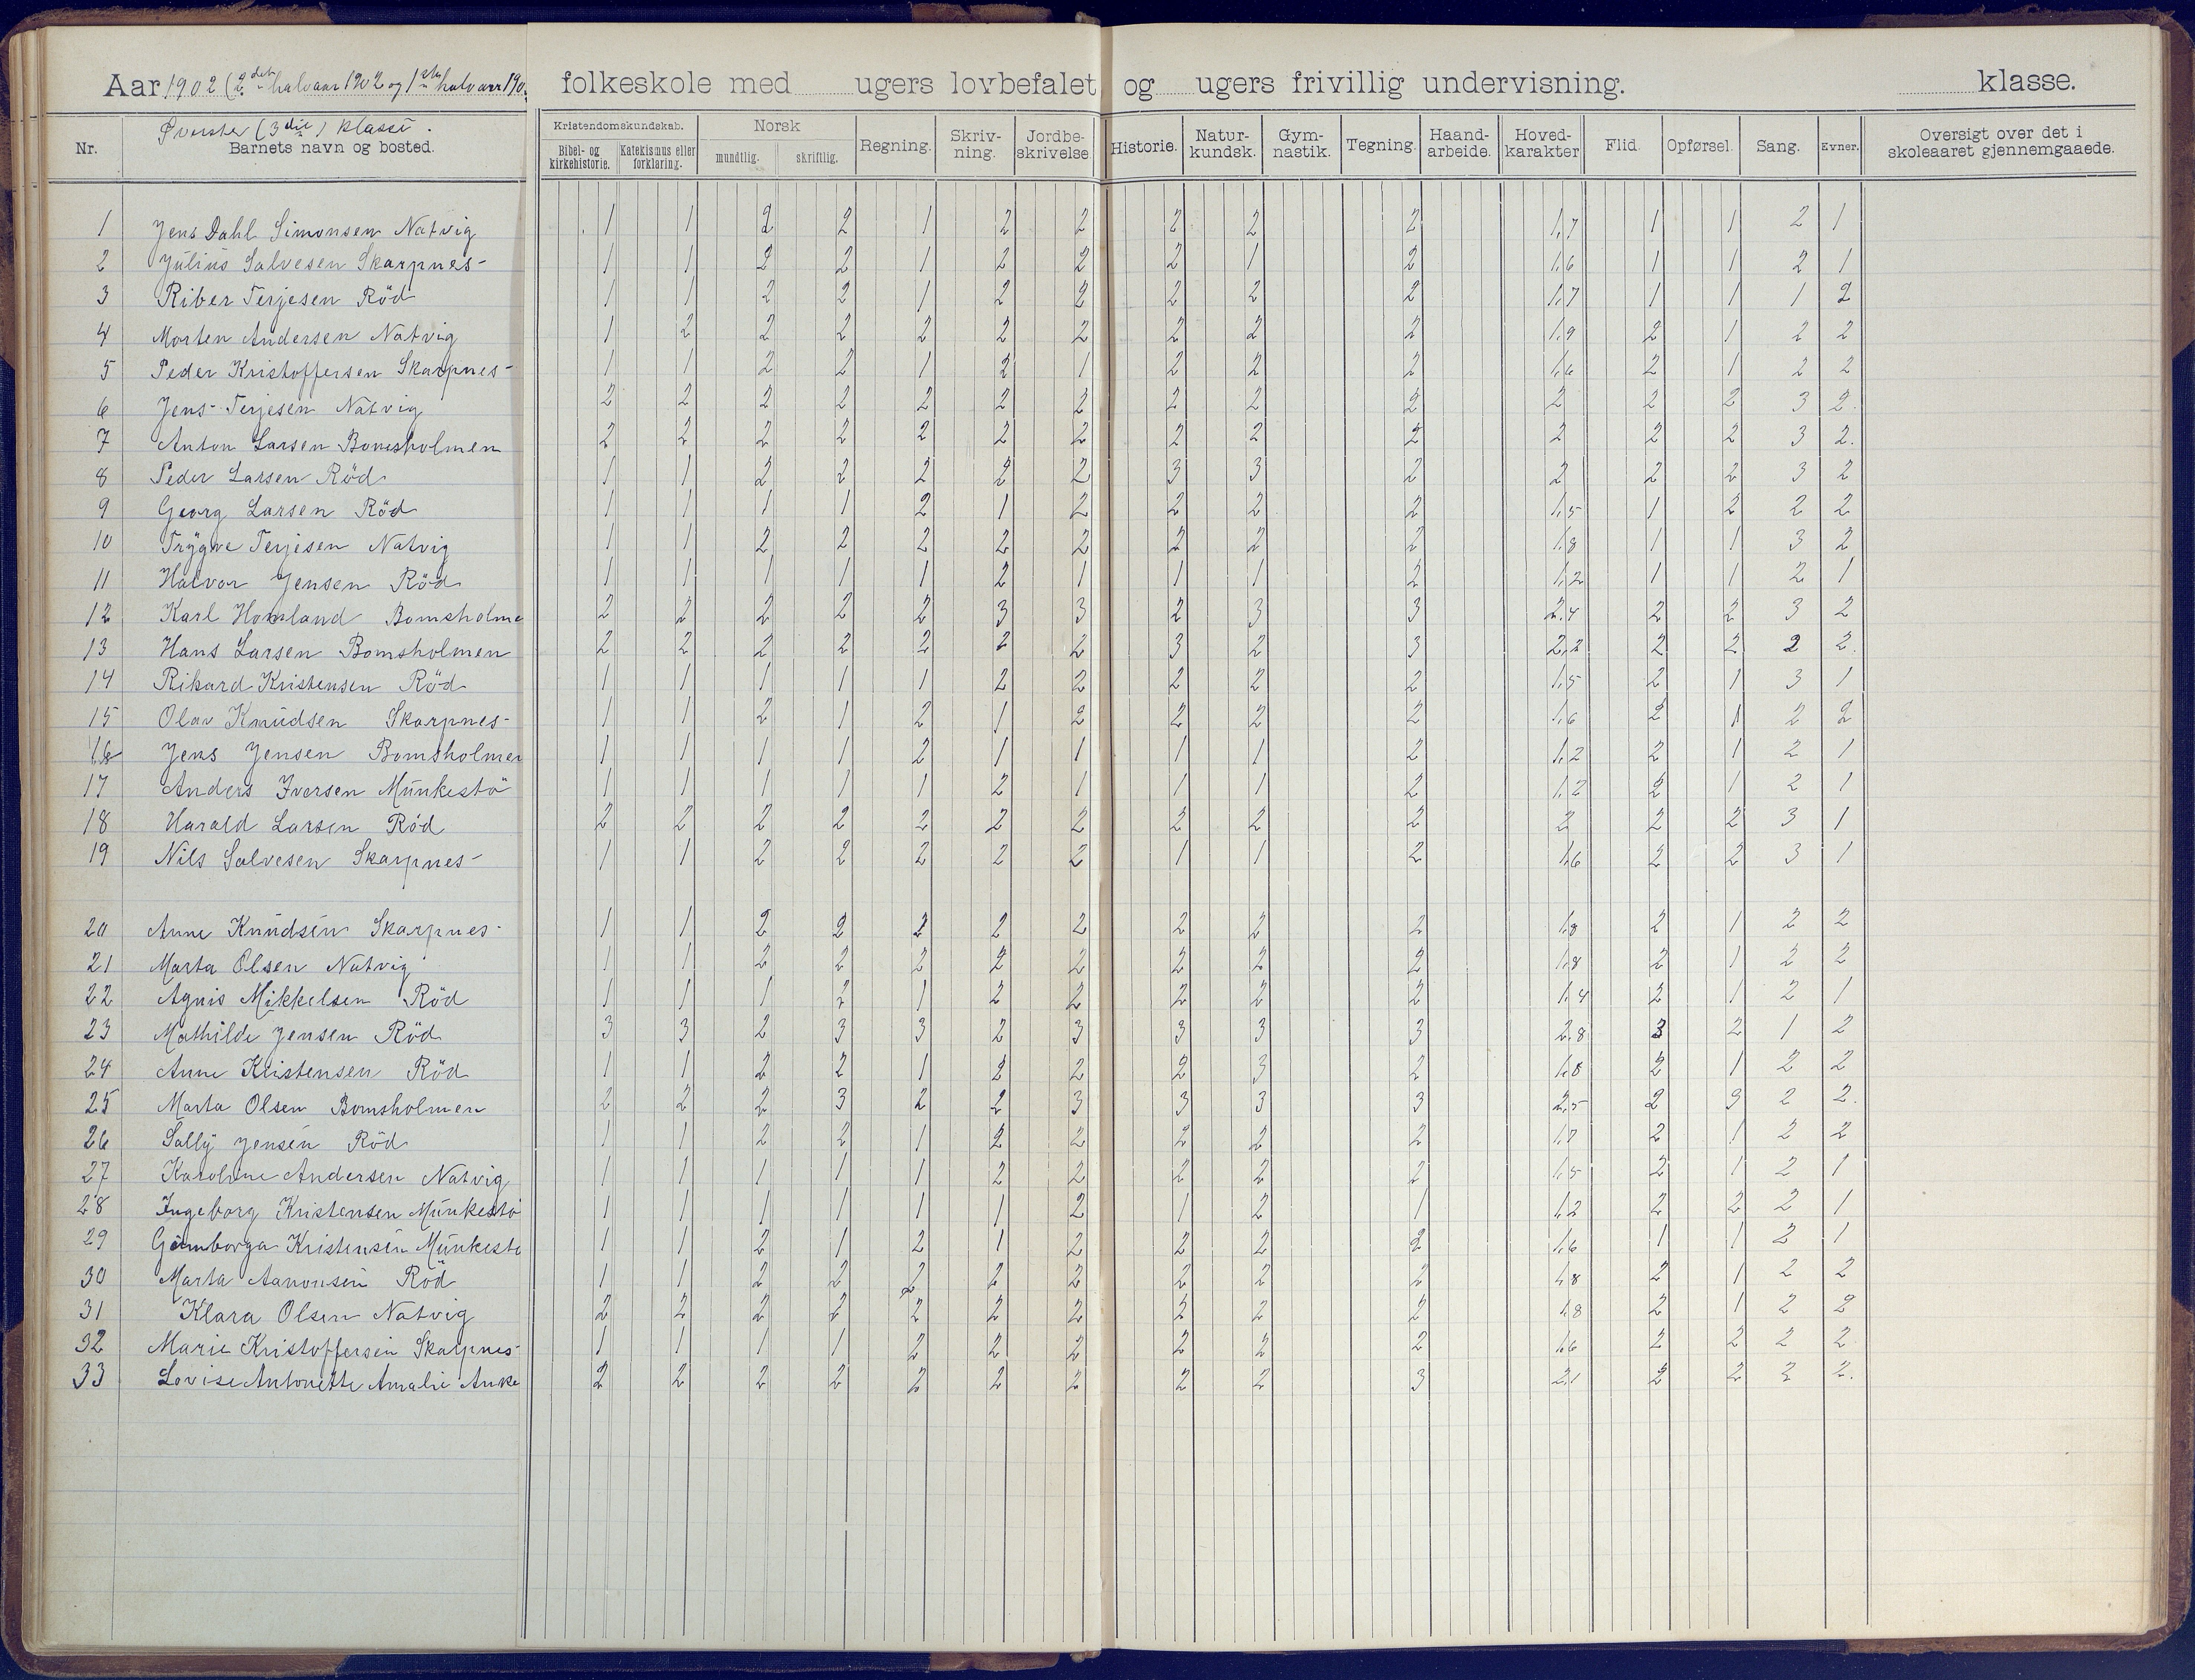 Aar 1902 (2det halvaar 1902 og 1ste halvaar 190 folkeskole med ugers lovbefalet og ugers frivillig undervisning. klasse.
Øverste (3die) klasse.
Nr. Barnets navn og bosted. Kristendomskundskab. Bibel- og kirkehistorie. Katekismus eller forklaring. Norsk mundtlig. skriftlig. Regning. Skriv-ning. Jordbe-skrivelse Historie. Natur-kundsk. Gym-nastik. Tegning. Haand-arbeide. Hoved-karakter Flid. Opførsel. Sang. Evner. Oversigt over det i skoleaaret gjennemgaaede.
1 Jens Dahl Simonsen Natvig 1 1 2 2 1 2 2 2 2 2 1,7 1 1 2 1
2 Julius Salvesen Skarpnes 1 1 2 2 1 2 2 2 1 2 1,6 1 1 2 1
3 Riber Terjesen Röd 1 1 2 2 1 2 2 2 2 2 1,7 1 1 1 2
4 Morten Andersen Natvig 1 2 2 2 2 2 2 2 2 2 1,9 2 1 2 2
5 Peder Kristoffersen Skarpnes 1 1 2 2 1 2 1 2 2 2 1,6 2 1 2 2
6 Jens Terjesen Natvig 2 2 2 2 2 2 2 2 2 2 2 2 2 3 2.
7 Anton Larsen Bomsholmen 2 2 2 2 2 2 2 2 2 2 2 2 2 3 2.
8 Peder Larsen Röd 1 1 2 2 2 2 2 3 3 2 2 2 2 3 2
9 Georg Larsen Röd 1 1 1 1 2 1 2 2 2 2 1,5 1 2 2 2
10 Trygve Terjesen Natvig 1 1 2 2 2 2 2 2 2 2 1,8 1 1 3 2
11 Halvor Jensen Röd 1 1 1 1 1 2 1 1 1 2 1,2 1 1 2 1
12 Karl Homland Bomsholme 2 2 2 2 2 3 3 2 3 3 2,4 2 2 3 2
13 Hans Larsen Bomsholmen 2 2 2 2 2 2 2 3 2 3 2,2 2 2 2 2.
14 Rikard Kristensen Röd 1 1 1 1 1 2 2 2 2 2 1,5 2 1 3 1
15 Olav Knudsen Skarpnes 1 1 2 1 2 1 2 2 2 2 1,6 2 1 2 2
16 Jens Jensen Bomsholmen 1 1 1 1 2 1 1 1 1 2 1,2 2 1 2 1
17 Anders Iversen Munkestö 1 1 1 1 1 2 1 1 1 2 1,2 2 1 2 1
18 Harald Larsen Röd 2 2 2 2 2 2 2 2 2 2 2 2 2 3 1
19 Nils Salvesen Skarpnes 1 1 2 2 2 2 2 1 1 2 1,6 2 2 3 1
20 Anne Knudsen Skarpnes 1 1 2 2 2 2 2 2 2 2 1,8 2 1 2 2
21 Marta Olsen Natvig 1 1 2 2 2 2 2 2 2 2 1,8 2 1 2 2
22 Agnis Mikkelsen Röd 1 1 1 2 1 2 2 2 2 2 1,4 2 1 2 1
23 Mathilde Jensen Röd 3 3 2 3 3 2 3 3 3 3 2,8 3 2 1 2
24 Anne Kristensen Röd 1 1 2 2 1 2 2 2 3 2 1,8 2 1 2 2
25 Marta Olsen Bomsholmen 2 2 2 3 2 2 3 3 3 3 2,5 2 3 2 2.
26 Sally Jensen Röd 1 1 2 2 1 2 2 2 2 2 1,7 2 1 2 2
27 Karoline Andersen Natvig 1 1 1 1 1 2 2 2 2 2 1,5 2 1 2 1
28 Ingeborg Kristensen Munkestö 1 1 1 1 1 1 2 1 2 1 1,2 2 2 2 1
29 Kristensen Munkestö 1 1 2 1 2 1 2 2 2 2 1,6 1 1 2 1
30 Marta Aanonsen Röd 1 1 2 2 2 2 2 2 2 2 1,8 2 1 2 2
31 Klara Olsen Natvig 2 2 2 2 2 2 2 2 2 2 1,8 2 1 2 2
32 Marie Kristoffersen Skarpnes 1 1 1 1 2 2 2 2 2 2 1,6 2 2 2 2
33 Lovise Antonette Amalie Anke 2 2 2 2 2 2 2 2 2 3 2,1 2 2 2 2.